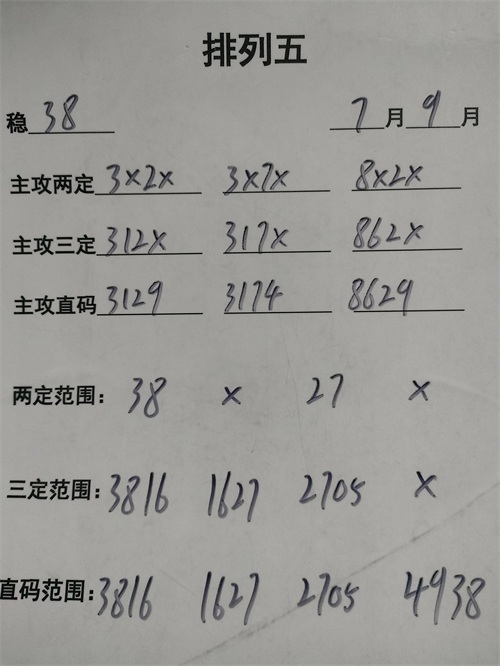 排列五
稳 38 7月9月
主攻两定 3×2× 3×7× 8×2×
主攻三定 312× 317× 862×
主攻直码 3129 3174 8629
两定范围： 38 × 27 ×
三定范围： 3816 1627 2705 ×
直码范围： 3816 1627 2705 4938